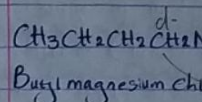 d-
CH3CH2CH2CH2M
Butyl magnesium chl